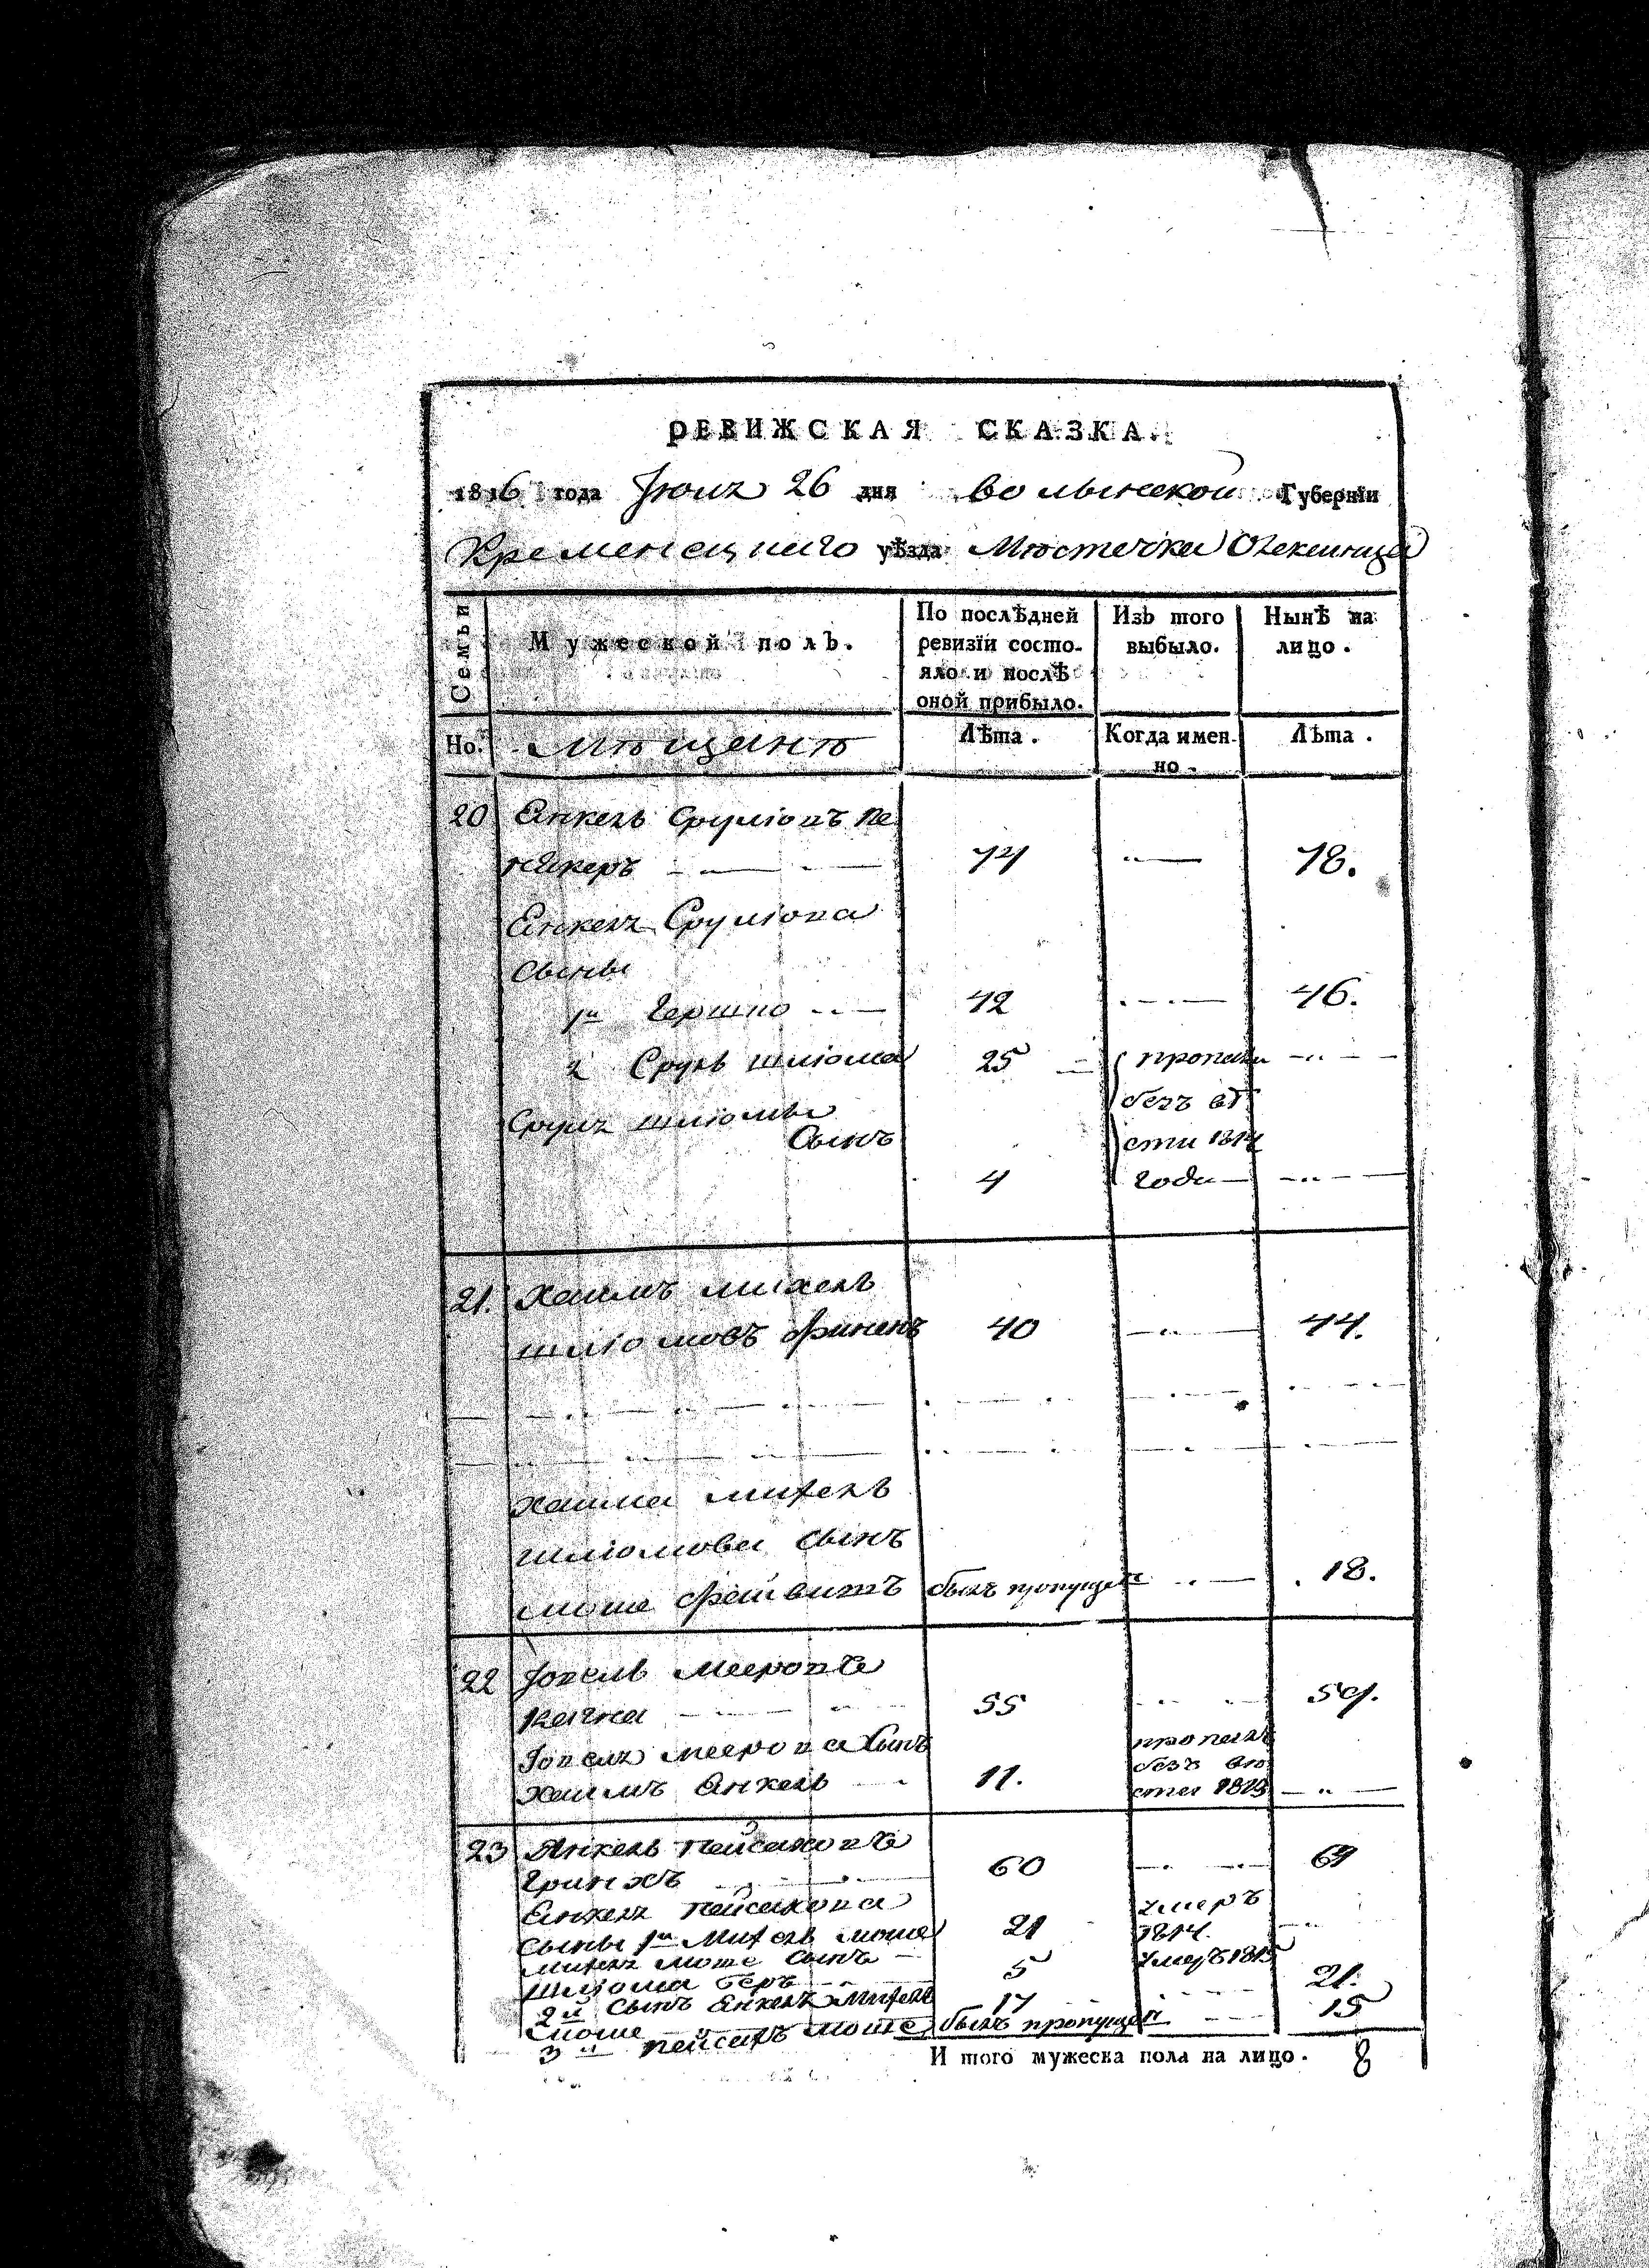 РЕВИЖСКАЯ СКАЗКА.
1816 года Іюня 26 дня волынской Губерніи
Кременецкаго уѣзда Мѣстечка Олексинца
Семьи
Мужеской полъ.
По послѣдней ревизіи состояло и послѣ оной прибыло.
Изъ того выбыло.
Ныне на лицо.
Но. Мѣщанѣ
Лѣта. Когда именно. Лѣта.
20 Янкель Сруліовъ Пе
керъ 74 78.
Янкеля Сруліова
сыны
1й Гершко 42 46.
2 Сруль шліома 25 пропали
безъ вѣ
Сруля шліомы
Сынъ сти 1814
4 года
21. Хаимъ михель
шліомовъ 40 44.
Хаима михель
шліомова сынъ
моше Фейвишъ былъ пропущен 18.
22 Іосель Мееровъ
55 59.
Іоселя меерова сынъ пропалъ
безъ вѣ
Хаимъ Янкель 11. сти 1813
23 Янкель Пейсаховъ
60 64
Янкеля Пейсахова умеръ
сыны 1й Михель моше 21 1814.
михеля моше сынъ
шліома беръ 5 умеръ 1815
2й сынъ Янкеля Михель 17 21.
моше
3й пейсахъ моше былъ пропущен 15
И того мужеска пола на лицо. 8